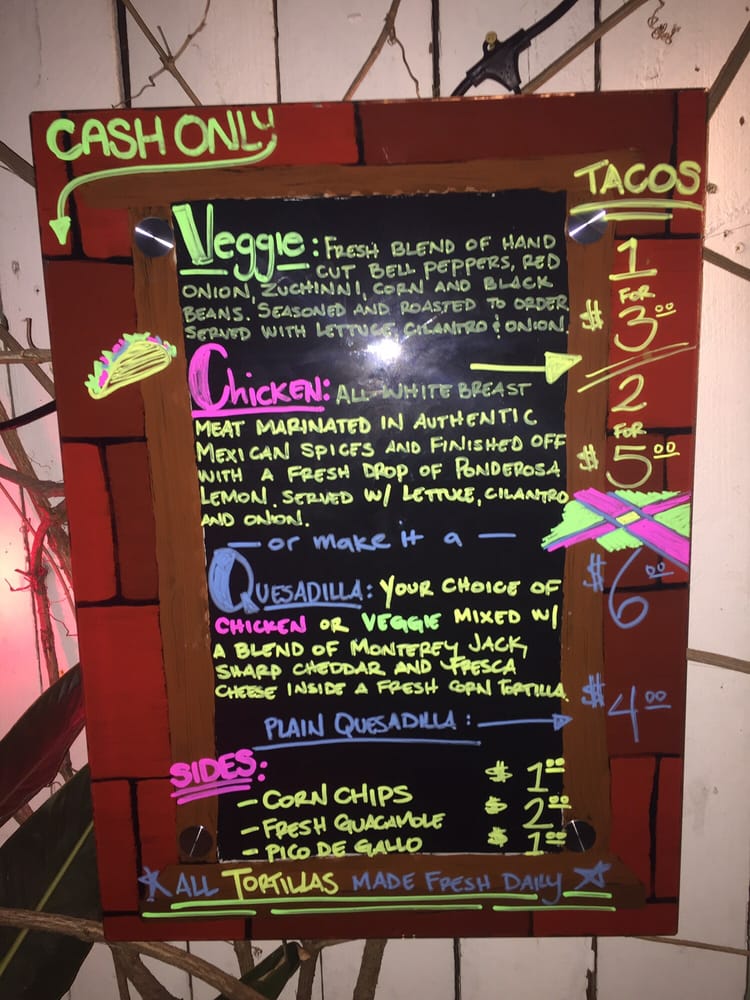 CASH ONLY
TACOS
Veggie: FRESH BLEND OF HAND
CUT BELL PEPPERS, RED
ONION, ZUCHINNI, CORN AND BLACK
BEANS. SEASONED AND ROASTED TO ORDER
SERVED WITH LETTUCE, CILANTRO & ONION.
1
FOR
$3.00
2
FOR
$5.00
Chicken: ALL-WHITE BREAST
MEAT MARINATED IN AUTHENTIC
MEXICAN SPICES AND FINISHED OFF
WITH A FRESH DROP OF PONDEROSA
LEMON. SERVED W/ LETTUCE, CILANTRO
AND ONION.
— or make it a —
QUESADILLA: YOUR CHOICE OF $6.00
CHICKEN OR VEGGIE MIXED W/
A BLEND OF MONTEREY JACK,
SHARP CHEDDAR AND FRESCA
CHEESE INSIDE A FRESH CORN TORTILLA.
PLAIN QUESADILLA: $4.00
SIDES:
- CORN CHIPS $1.00
- FRESH GUACAMOLE $2.00
- PICO DE GALLO $1.00
ALL TORTILLAS MADE FRESH DAILY